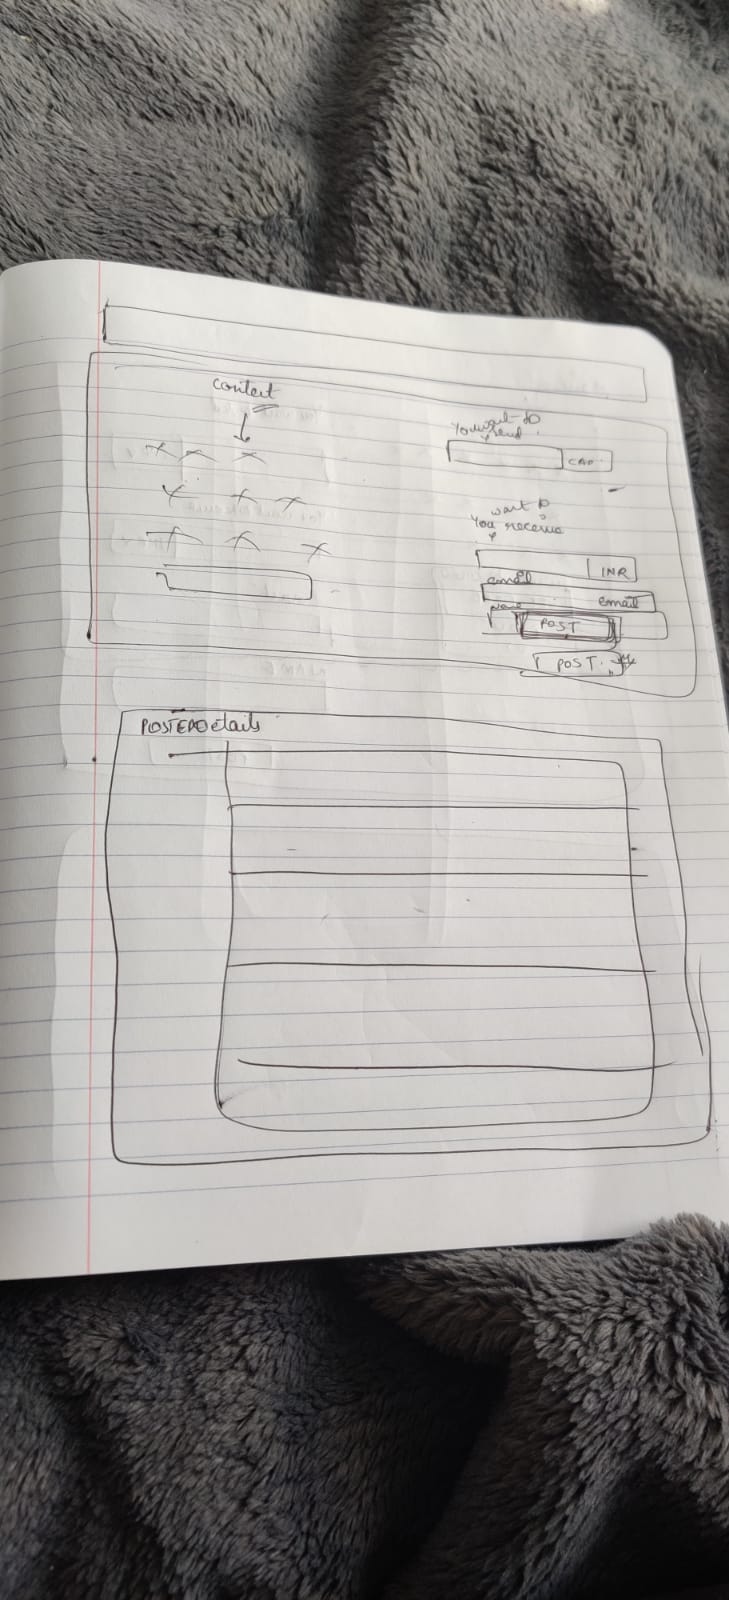 content
You want to
send
CAD
want to
You receive
INR
email
email
name
POST
POST
POSTED Details